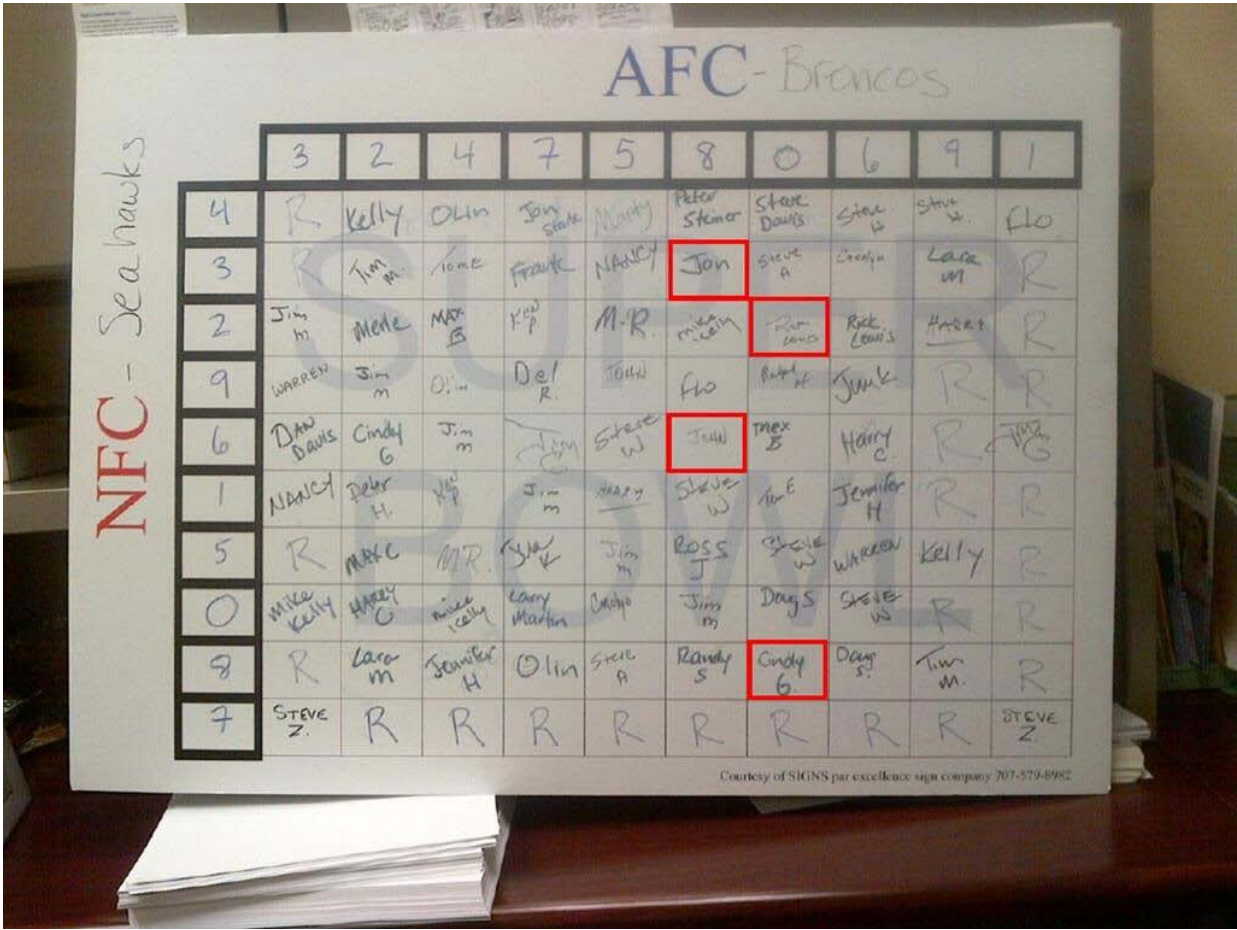 AFC - Broncos
NFC - Seahawks
3 2 4 7 5 8 0 6 9 1
4 R Kelly Olin Jon State Marty Peter Steiner Steve Davis Steve W Steve W. Flo
3 R Tim M. Tom E Frank NANCY Jon Steve A Carolyn Lara M R
2 Jim m Merle MAX B Ken P M.R. mike kelly Rick Lewis HARRY R
9 WARREN Jim m Olin Del R. JOHN Flo Ralph H Junk R R
6 DAN Davis Cindy G Jim m Jim G Steve W JOHN max B Harry C. R Jim G
1 NANCY Peter H. Ken P Jim m HARRY STEVE W Tom E Jennifer H R R
5 R MAX C M.R. K Jim m ROSS J STEVE W WARREN Kelly R
0 Mike Kelly HARRY C mike kelly Larry Martin Carolyn Jim m Doug S STEVE W R R
8 R Lara M Jennifer H Olin Steve A Randy S Cindy G. Doug S. Tim M. R
7 STEVE Z. R R R R R R R R STEVE Z
SUPER
BOWL
Courtesy of SIGNS par excellence sign company 707-579-8982